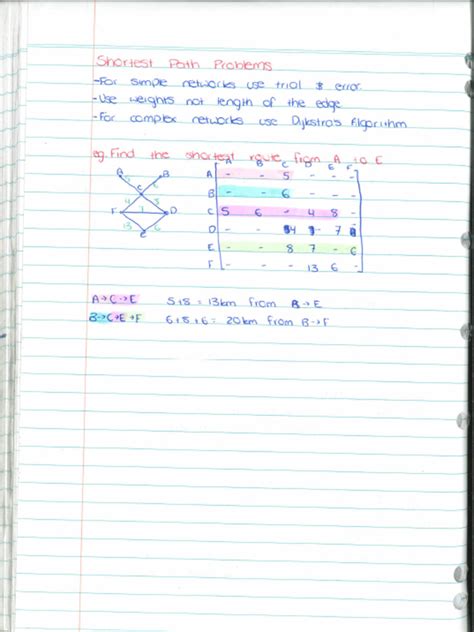 Shortest Path Problems
-For simple networks use trial & error.
-Use weights not length of the edge
-For complex networks use Dijkstra's Algorithm
eg. Find the shortest route from A to E
A B C D E F
A - - 5 - - -
B - - 6 - - -
C 5 6 - 4 8 -
D - - 4 - 7
E - - 8 7 - 6
F - - - 13 6 -
A B
C
4 8
F D
13 6
E
A→C→E 5+8 = 13km from B→E
B→C→E→F 6+8+6 = 20km from B→F